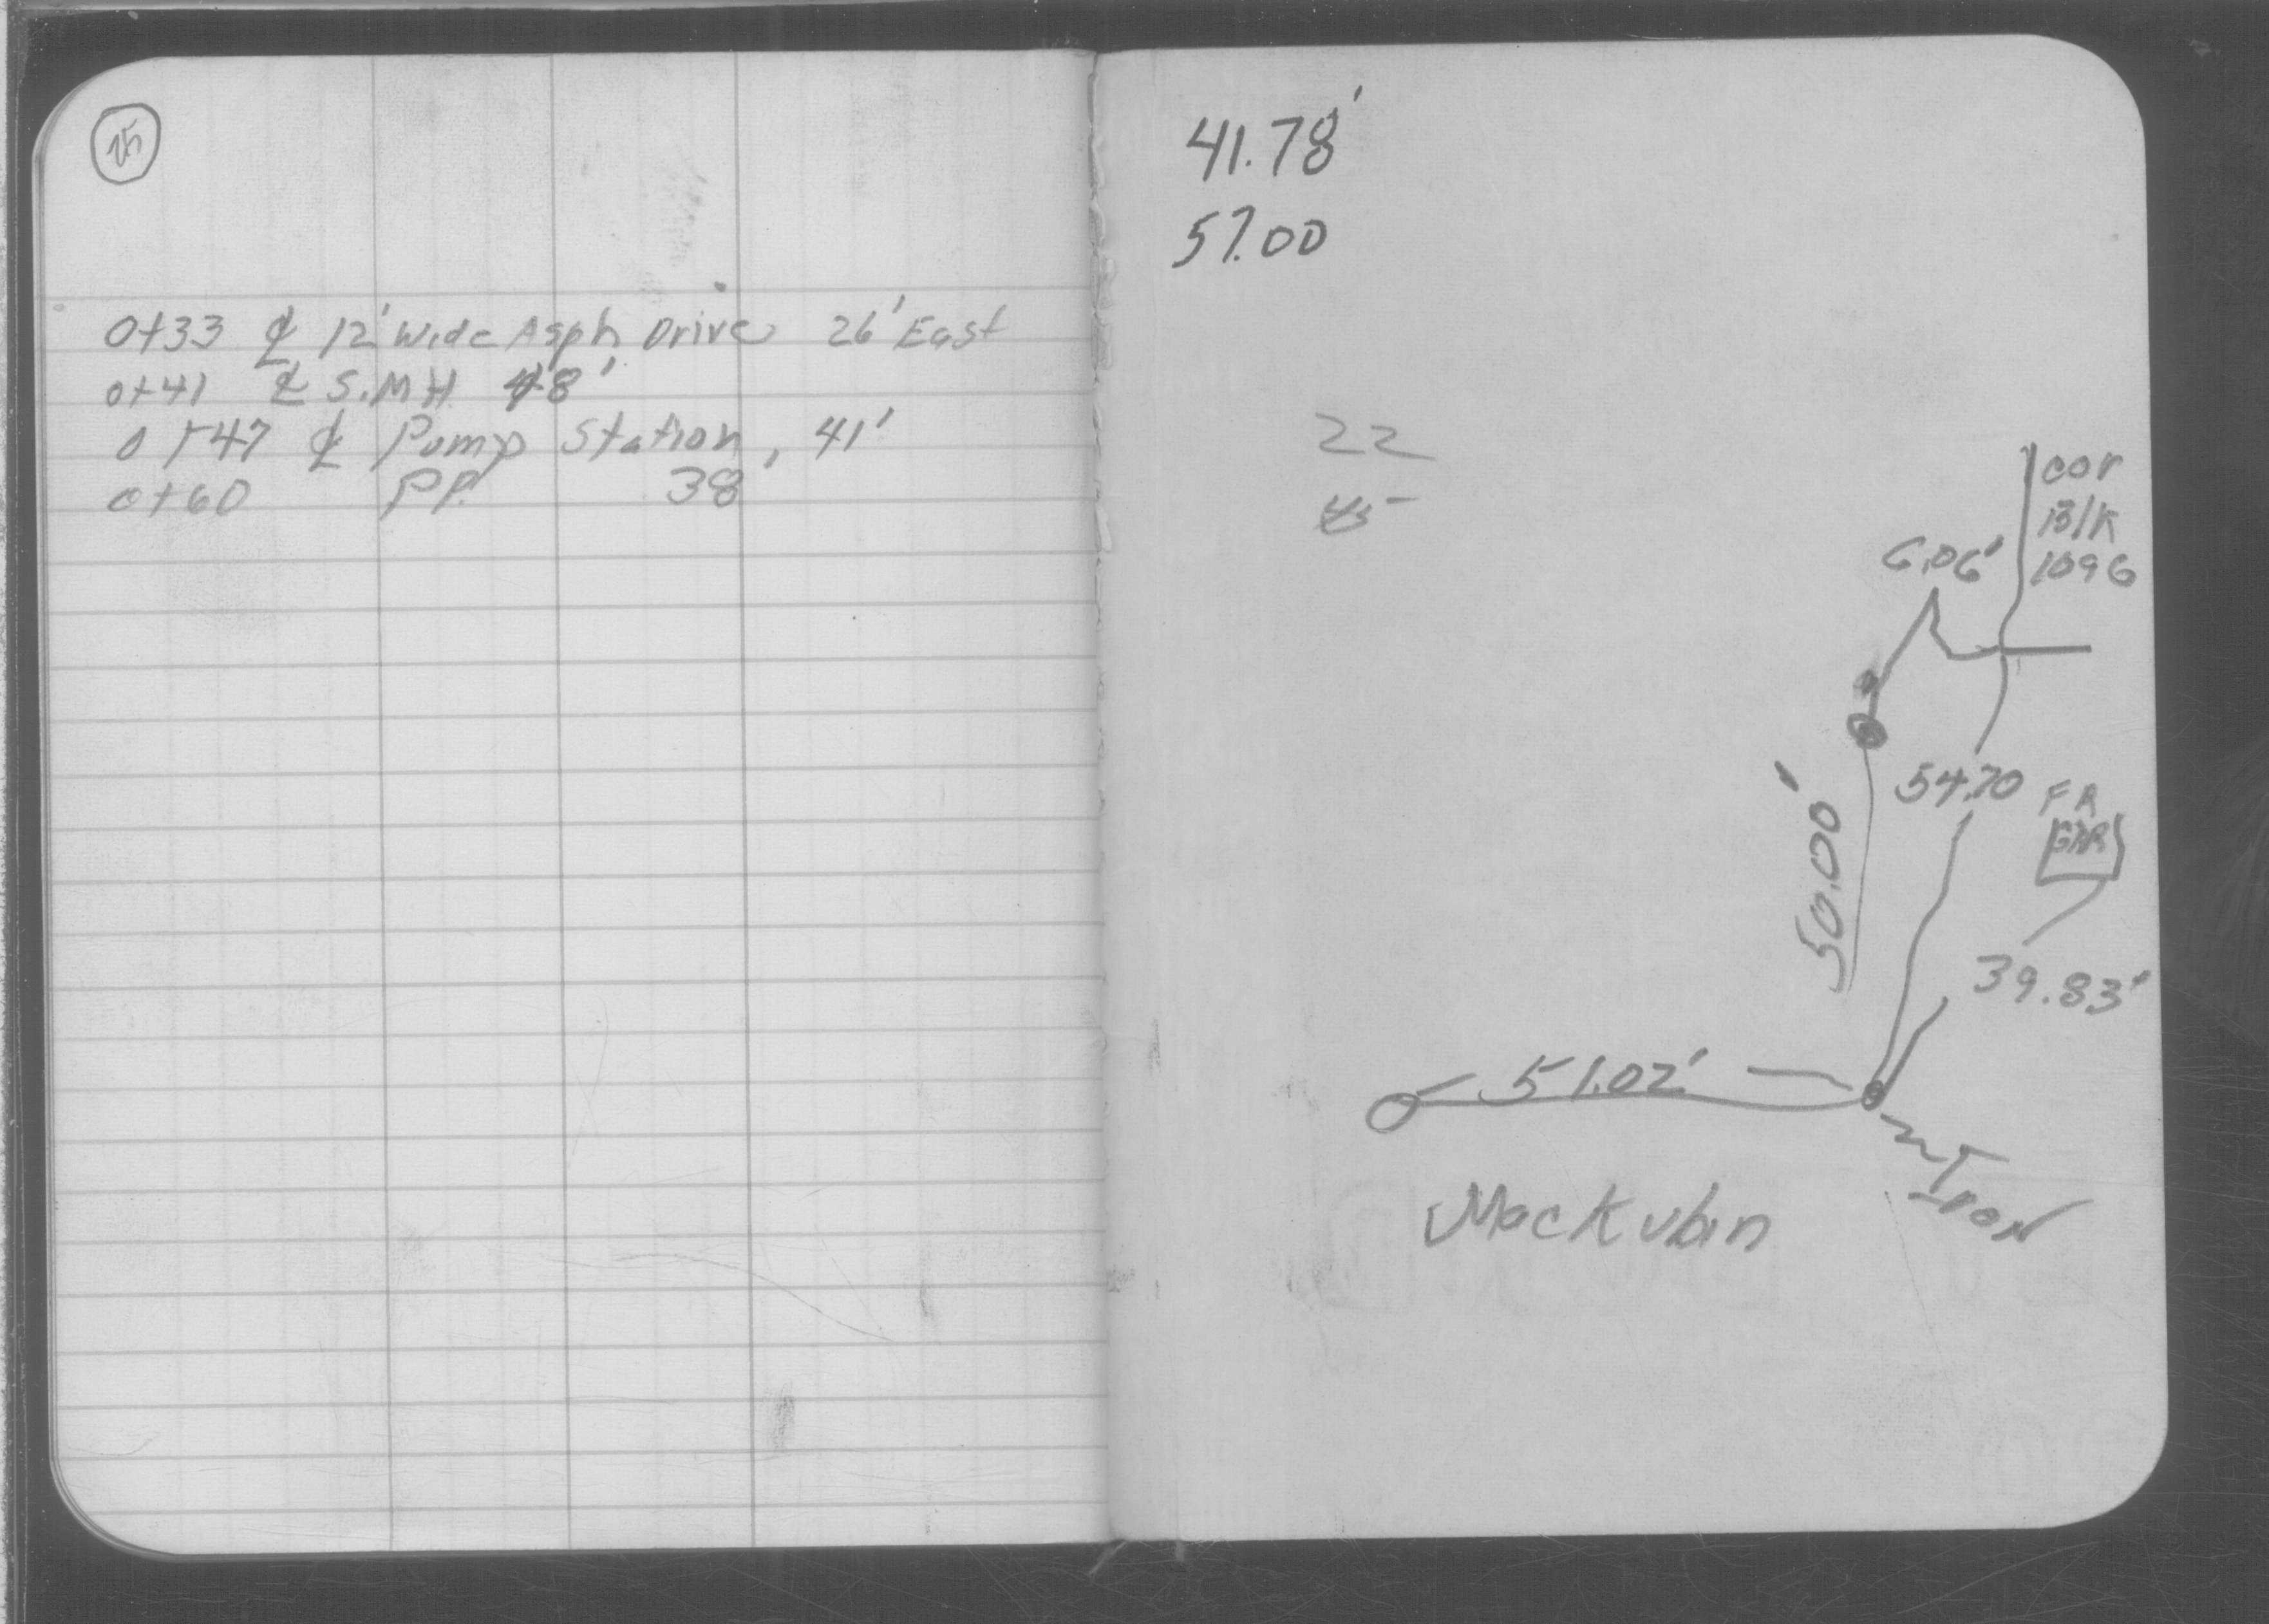 25
0+33 ℄ 12' Wide Asph Drive 26' East
0+41 ℄ S.MH 48'
0+47 ℄ Pump Station, 41'
0+60 PP. 38'
41.78'
57.00
22
45
cor
Blk
1096
6.06'
50.00'
54.70
FR
GAR
39.83'
51.02'
Iron
Mackubin